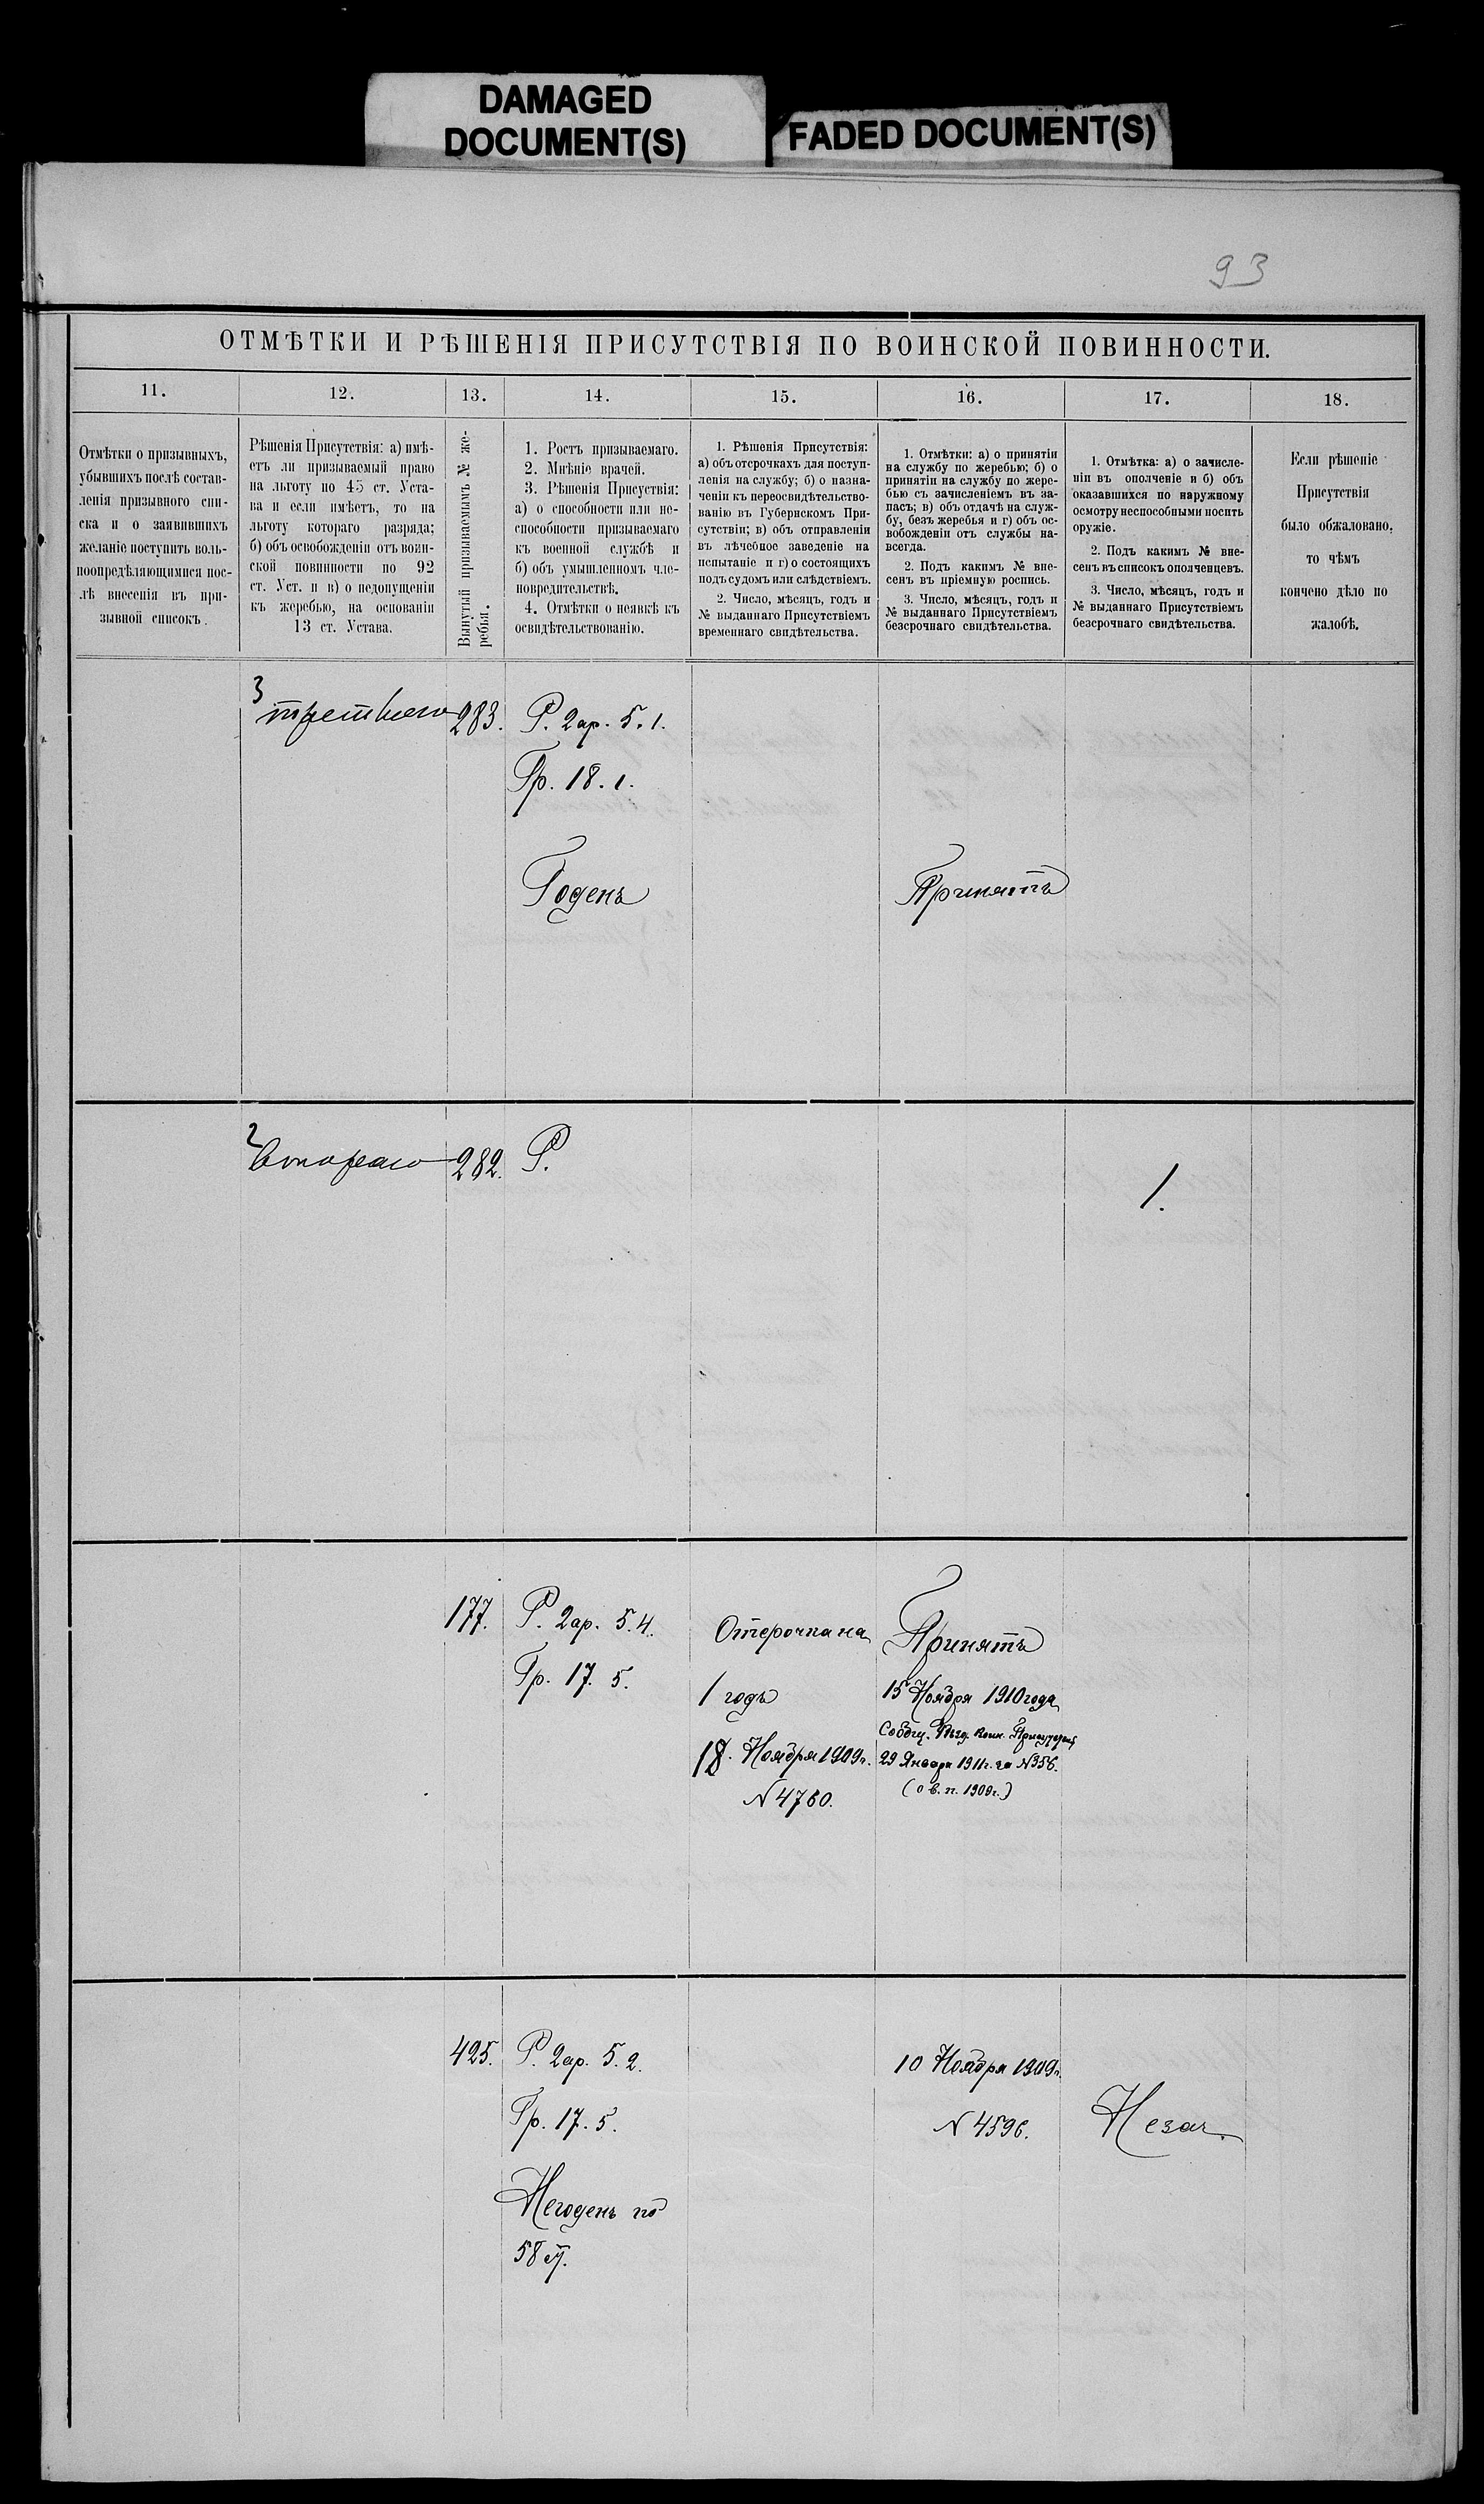 DAMAGED
DOCUMENT(S)
FADED DOCUMENT(S)
93
ОТМѢТКИ И РѢШЕНІЯ ПРИСУТСТВІЯ ПО ВОИНСКОЙ ПОВИННОСТИ.
11.
12.
13.
14.
15.
16.
17.
18.
Отмѣтки о призывныхъ,
убывшихъ послѣ состав-
ленія призывного спи-
ска и о заявившихъ
желаніе поступить воль-
ноопредѣляющимися пос-
лѣ внесенія въ при-
зывной списокъ.
Рѣшенія Присутствія: а) имѣ-
етъ ли призываемый право
на льготу по 45 ст. Уста-
ва и если имѣетъ, то на
льготу котораго разряда;
б) объ освобожденіи отъ воин-
ской повинности по 92
ст. Уст. и в) о недопущеніи
къ жеребью, на основаніи
13 ст. Устава.
Вынутый призываемымъ № же-
ребья.
1. Ростъ призываемаго.
2. Мнѣніе врачей.
3. Рѣшенія Присуствія:
а) о способности или не-
способности призываемаго
къ военной службѣ и
б) объ умышленномъ чле-
новредительствѣ.
4. Отмѣтки о неявкѣ къ
освидѣтельствованію.
1. Рѣшенія Присутствія:
а) объ отсрочкахъ для поступ-
ленія на службу; б) о назна-
ченіи къ переосвидѣтельство-
ванію въ Губернскомъ При-
сутствіи; в) объ отправленіи
въ лѣчебное заведеніе на
испытаніе и г) о состоящихъ
подъ судомъ или слѣдствіемъ.
2. Число, мѣсяцъ, годъ и
№ выданнаго Присутствіемъ
временнаго свидѣтельства.
1. Отмѣтки: а) о принятіи
на службу по жеребью; б) о
принятіи на службу по жере-
бью съ зачисленіемъ въ за-
пасъ; в) объ отдачѣ на служ-
бу, безъ жеребья и г) объ ос-
вобожденіи отъ службы на-
всегда.
2. Подъ какимъ № вне-
сенъ въ пріемную роспись.
3. Число, мѣсяцъ, годъ и
№ выданнаго Присутствіемъ
безсрочнаго свидѣтельства.
1. Отмѣтка: а) о зачисле-
ніи въ ополченіе и б) объ
оказавшихся по наружному
осмотру неспособными носить
оружіе.
2. Подъ какимъ № вне-
сенъ въ списокъ ополченцевъ.
3. Число, мѣсяцъ, годъ и
№ выданнаго Присутствіемъ
безсрочнаго свидѣтельства.
Если рѣшеніе
Присутствія
было обжаловано,
то чѣмъ
кончено дѣло по
жалобѣ.
3
третьяго
283.
Р. 2ар. 5. 1.
Гр. 18. 1.
Годенъ
Принятъ
2
Второго
282.
Р.
1.
177.
Р. 2ар. 5. 4.
Гр. 17. 5.
Отсрочка на
1 годъ
18. Ноября 1909г.
N 4760.
Принятъ
15 Ноября 1910 года
29 Января 1911г. за N 356.
(о в. п. 1909г.)
425.
Р. 2ар. 5. 2.
Гр. 17. 5.
Негоденъ по
58 ст.
10 Ноября 1909г.
N 4596.
Незач.